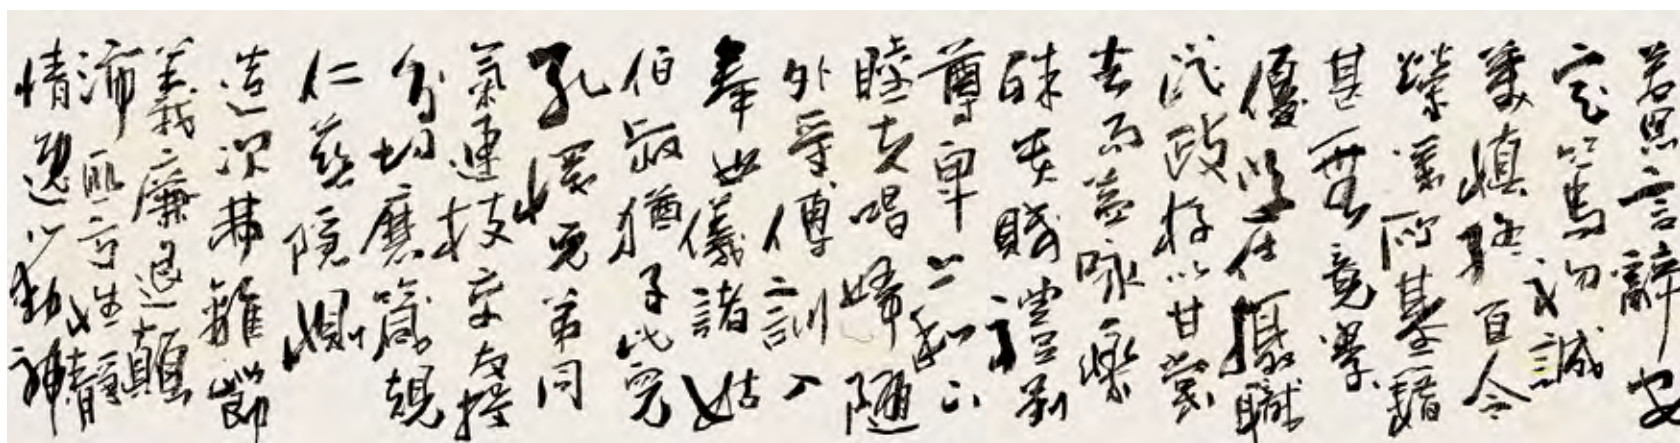 若思言辭安
定篤初誠
美慎終宜令
榮業所基籍
甚無竟學
優登仕攝職
從政存以甘棠
去而益咏樂
殊貴賤禮別
尊卑上和下
睦夫唱婦隨
外受傅訓入
奉母儀諸姑
伯叔猶子比兒
孔懷兄弟同
氣連枝交友投
分切磨箴規
仁慈隱惻
造次弗離節
義廉退顛
沛匪虧性靜
情逸心動神